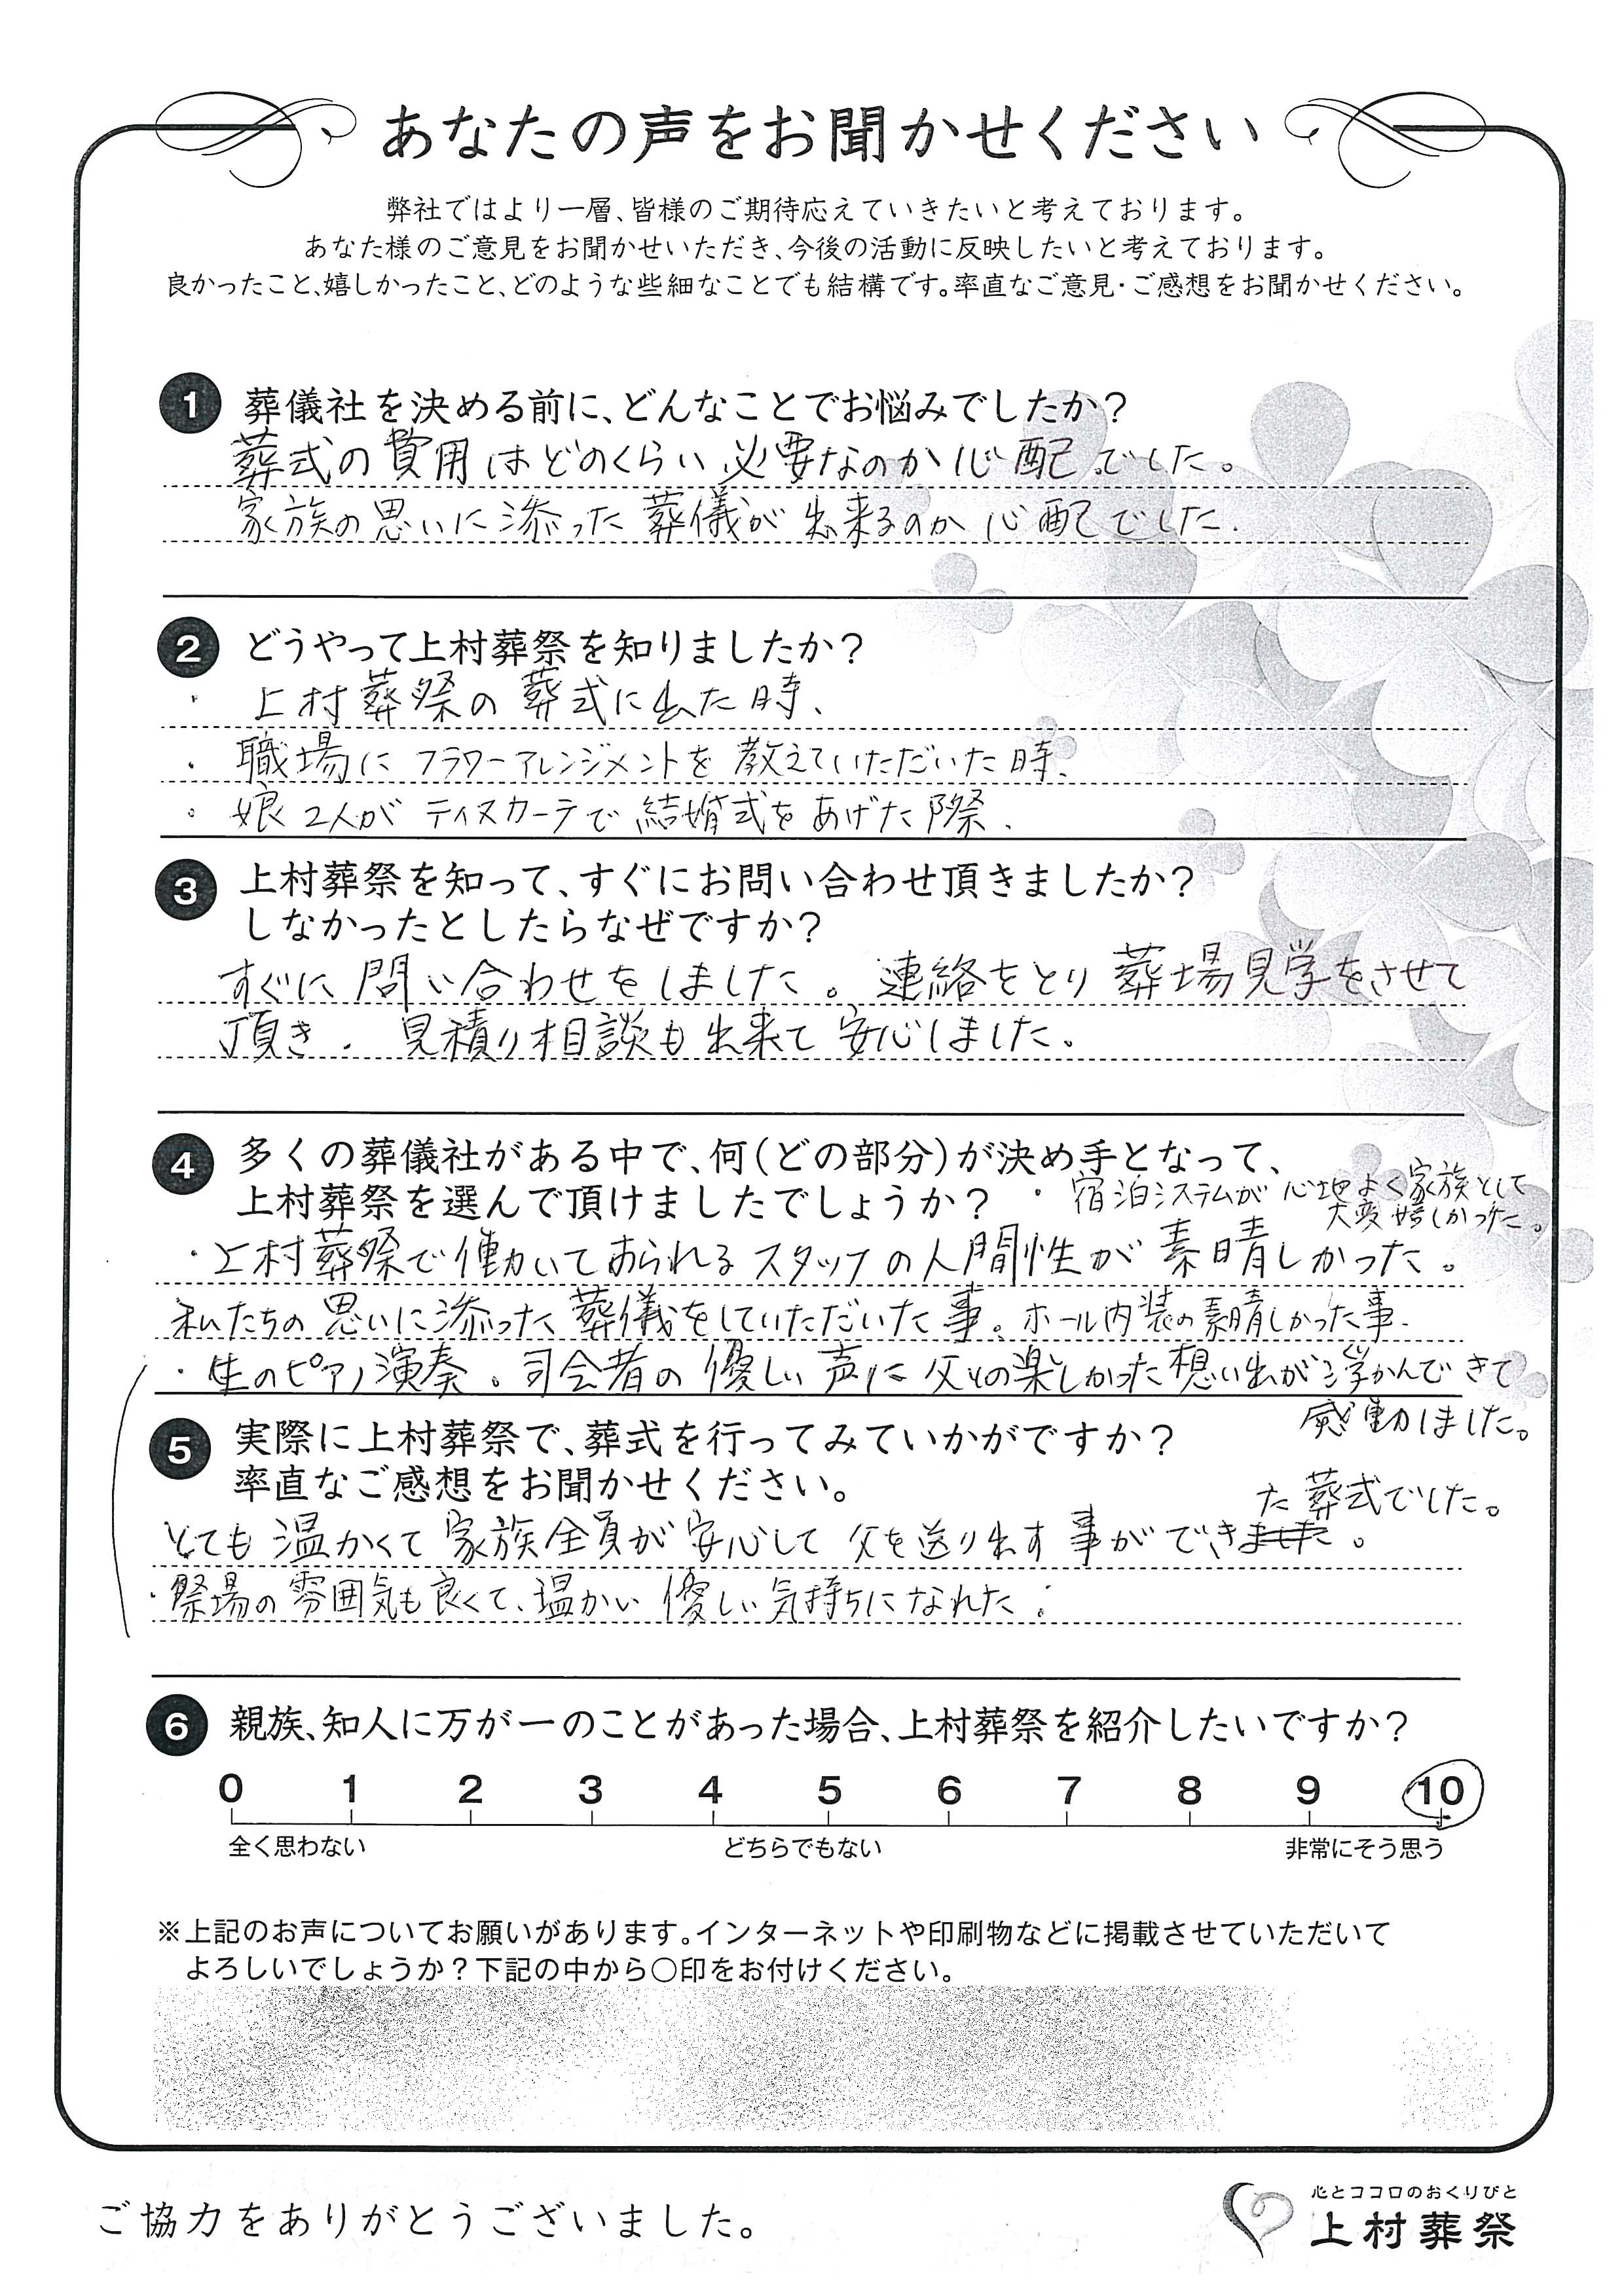 あなたの声をお聞かせください
弊社ではより一層、皆様のご期待応えていきたいと考えております。
あなた様のご意見をお聞かせいただき、今後の活動に反映したいと考えております。
良かったこと、嬉しかったこと、どのような些細なことでも結構です。率直なご意見・ご感想をお聞かせください。
1 葬儀社を決める前に、どんなことでお悩みでしたか？
葬式の費用はどのくらい必要なのか心配でした。
家族の思いに添った葬儀が出来るのか心配でした.
2 どうやって上村葬祭を知りましたか？
・上村葬祭の葬式に出た時、
・職場にフラワーアレンジメントを教えていただいた時、
・娘2人がティスカーテで結婚式をあげた際.
3 上村葬祭を知って、すぐにお問い合わせ頂きましたか？
しなかったとしたらなぜですか？
すぐに問い合わせをしました。連絡をとり葬場見学をさせて
頂き、見積り相談も出来て安心しました。
4 多くの葬儀社がある中で、何（どの部分）が決め手となって、
上村葬祭を選んで頂けましたでしょうか？
・宿泊システムが心地よく家族として
大変嬉しかった。
・上村葬祭で働いておられるスタッフの人間性が素晴しかった。
私たちの思いに添った葬儀をしていただいた事。ホール内装の素晴しかった事.
・生のピアノ演奏。司会者の優しい声に父との楽しかった想い出が浮かんできて
感動しました。
5 実際に上村葬祭で、葬式を行ってみていかがですか？
率直なご感想をお聞かせください。
とても温かくて家族全員が安心して父を送り出す事ができました。
た葬式でした。
・祭場の雰囲気も良くて、温かい優しい気持ちになれた。
6 親族、知人に万が一のことがあった場合、上村葬祭を紹介したいですか？
0 1 2 3 4 5 6 7 8 9 10
全く思わない どちらでもない 非常にそう思う
※上記のお声についてお願いがあります。インターネットや印刷物などに掲載させていただいて
よろしいでしょうか？下記の中から○印をお付けください。
ご協力をありがとうございました。
心とココロのおくりびと
上村葬祭